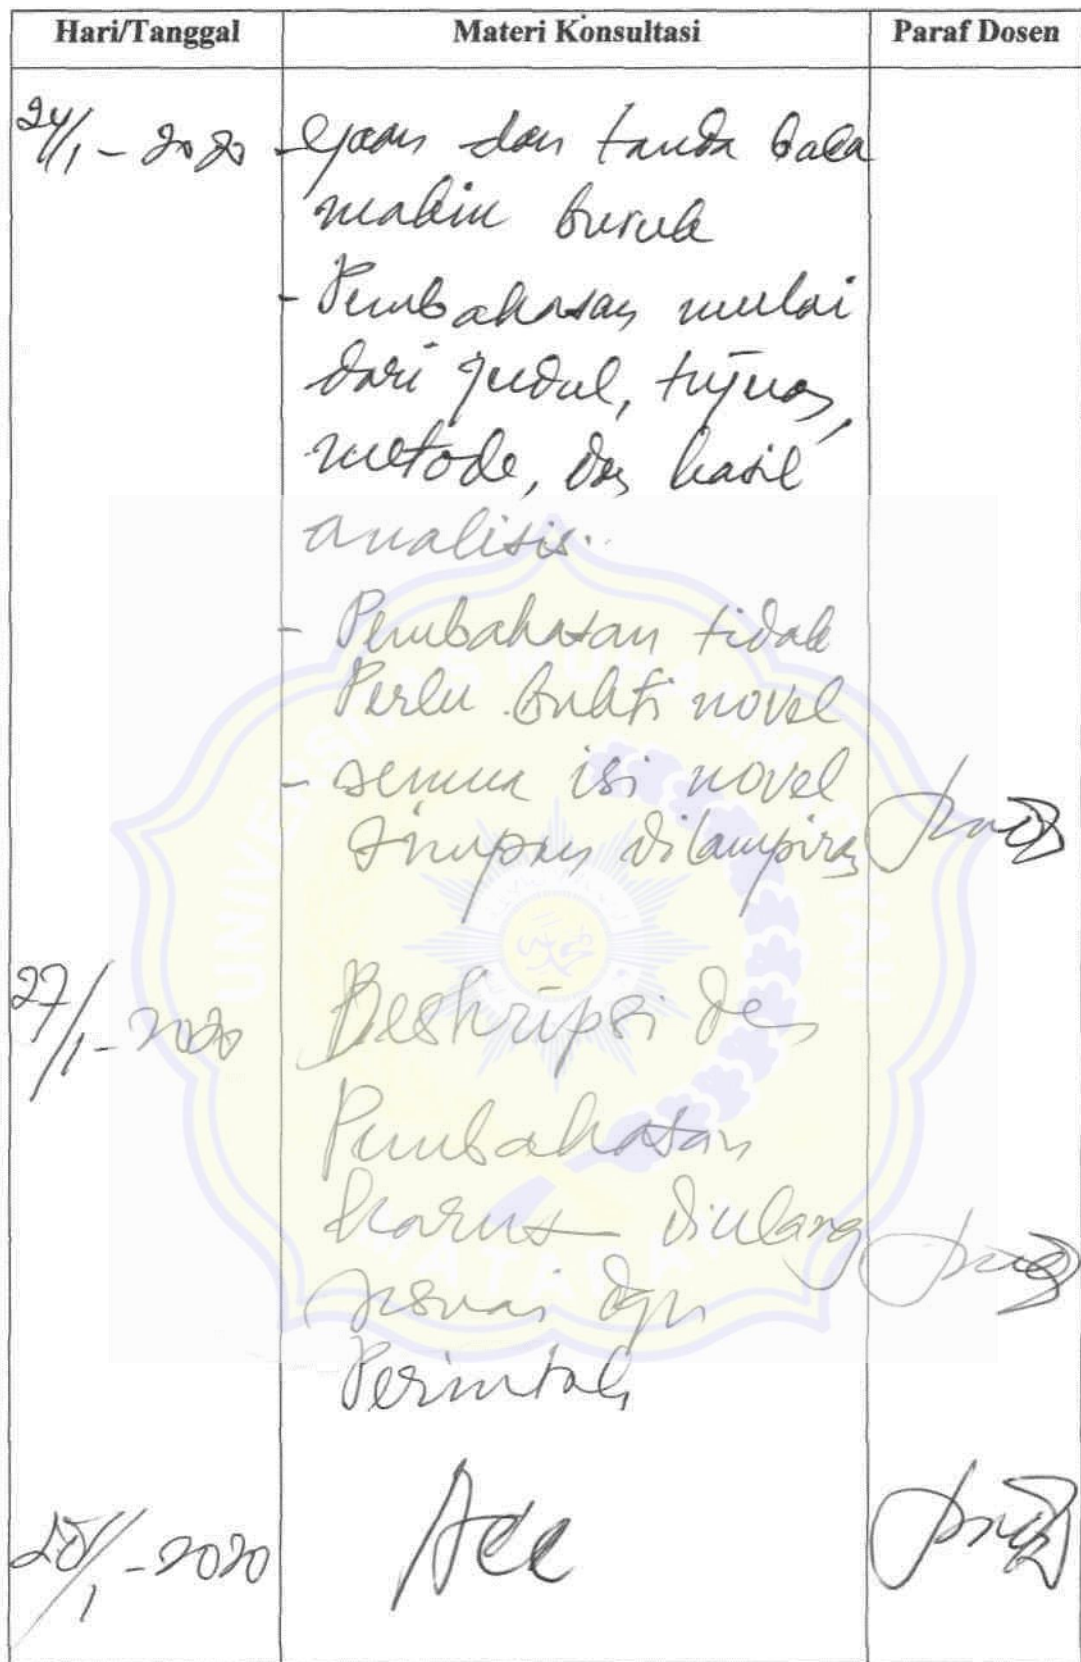 Hari/Tanggal Materi Konsultasi Paraf Dosen
24/1 - 2020 - ejaan dan tanda baca
makin buruk
- Pembahasan mulai
dari judul, tujuan,
metode, dan hasil
analisis.
- Pembahasan tidak
Perlu bukti novel
- semua isi novel
simpan dilampiran
27/1 - 2020 Deskripsi dan
Pembahasan
harus diulang
sesuai dgn
Perintah
28/1 - 2020 Acc
UNIVERSITAS MUHAMMADIYAH
MATARAM